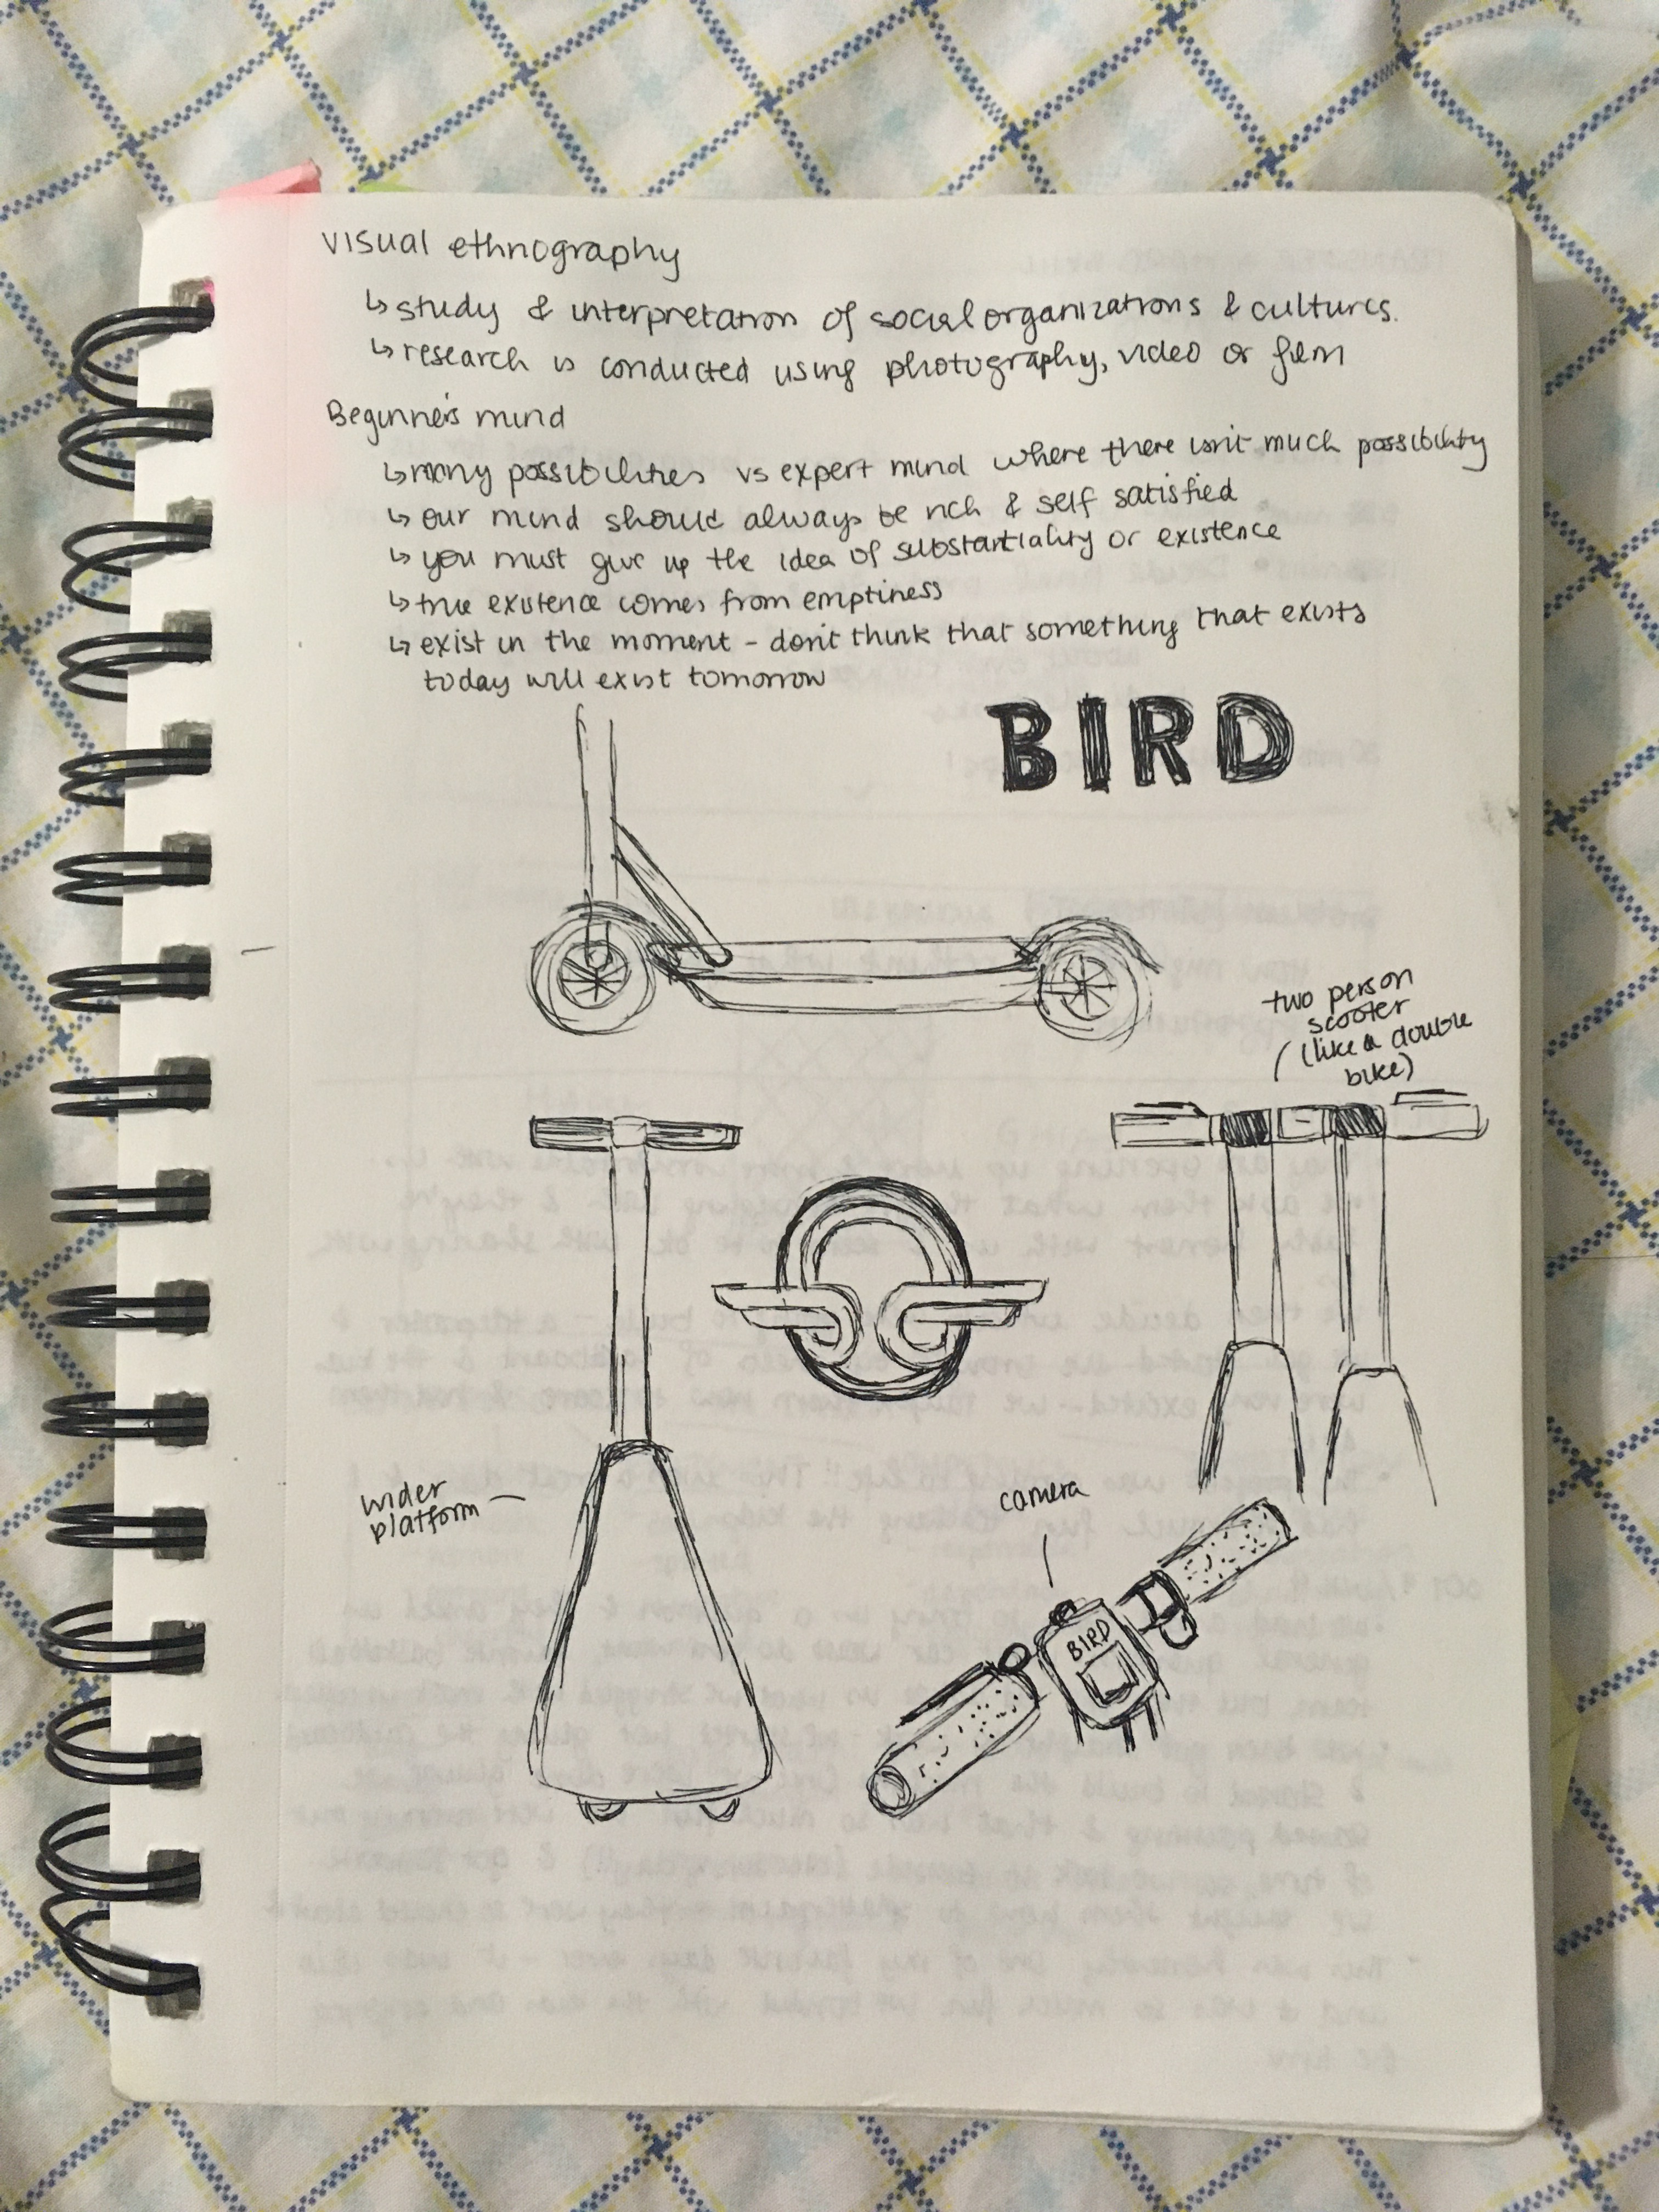 visual ethnography
↳ study & interpretation of social organizations & cultures.
↳ research is conducted using photography, video or film
Beginner's mind
↳ many possibilities vs expert mind where there isn't much possibility
↳ our mind should always be rich & self satisfied
↳ you must give up the idea of substantiality or existence
↳ true existence comes from emptiness
↳ exist in the moment - don't think that something that exists
today will exist tomorrow
BIRD
two person
scooter
(like a double
bike)
wider
platform
camera
BIRD